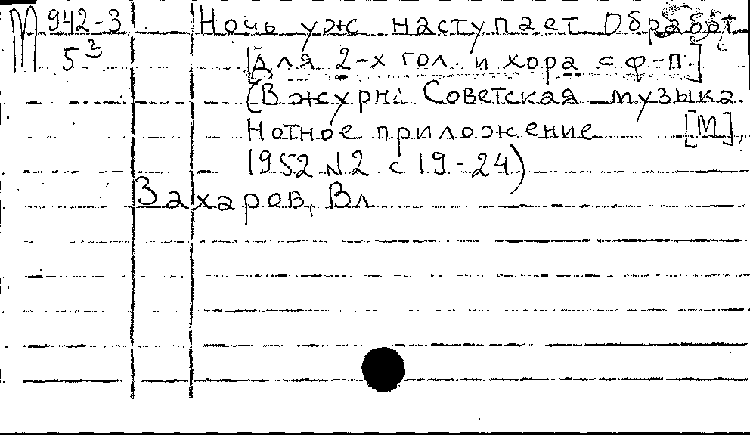 М 942-3 Ночь уж наступает Обработ
5³ [Для 2-х гол. и хора с ф-п.]
(В журн: Советская музыка.
Нотное приложение [М],
1952 № 2 с 19-24)
Захаров, Вл